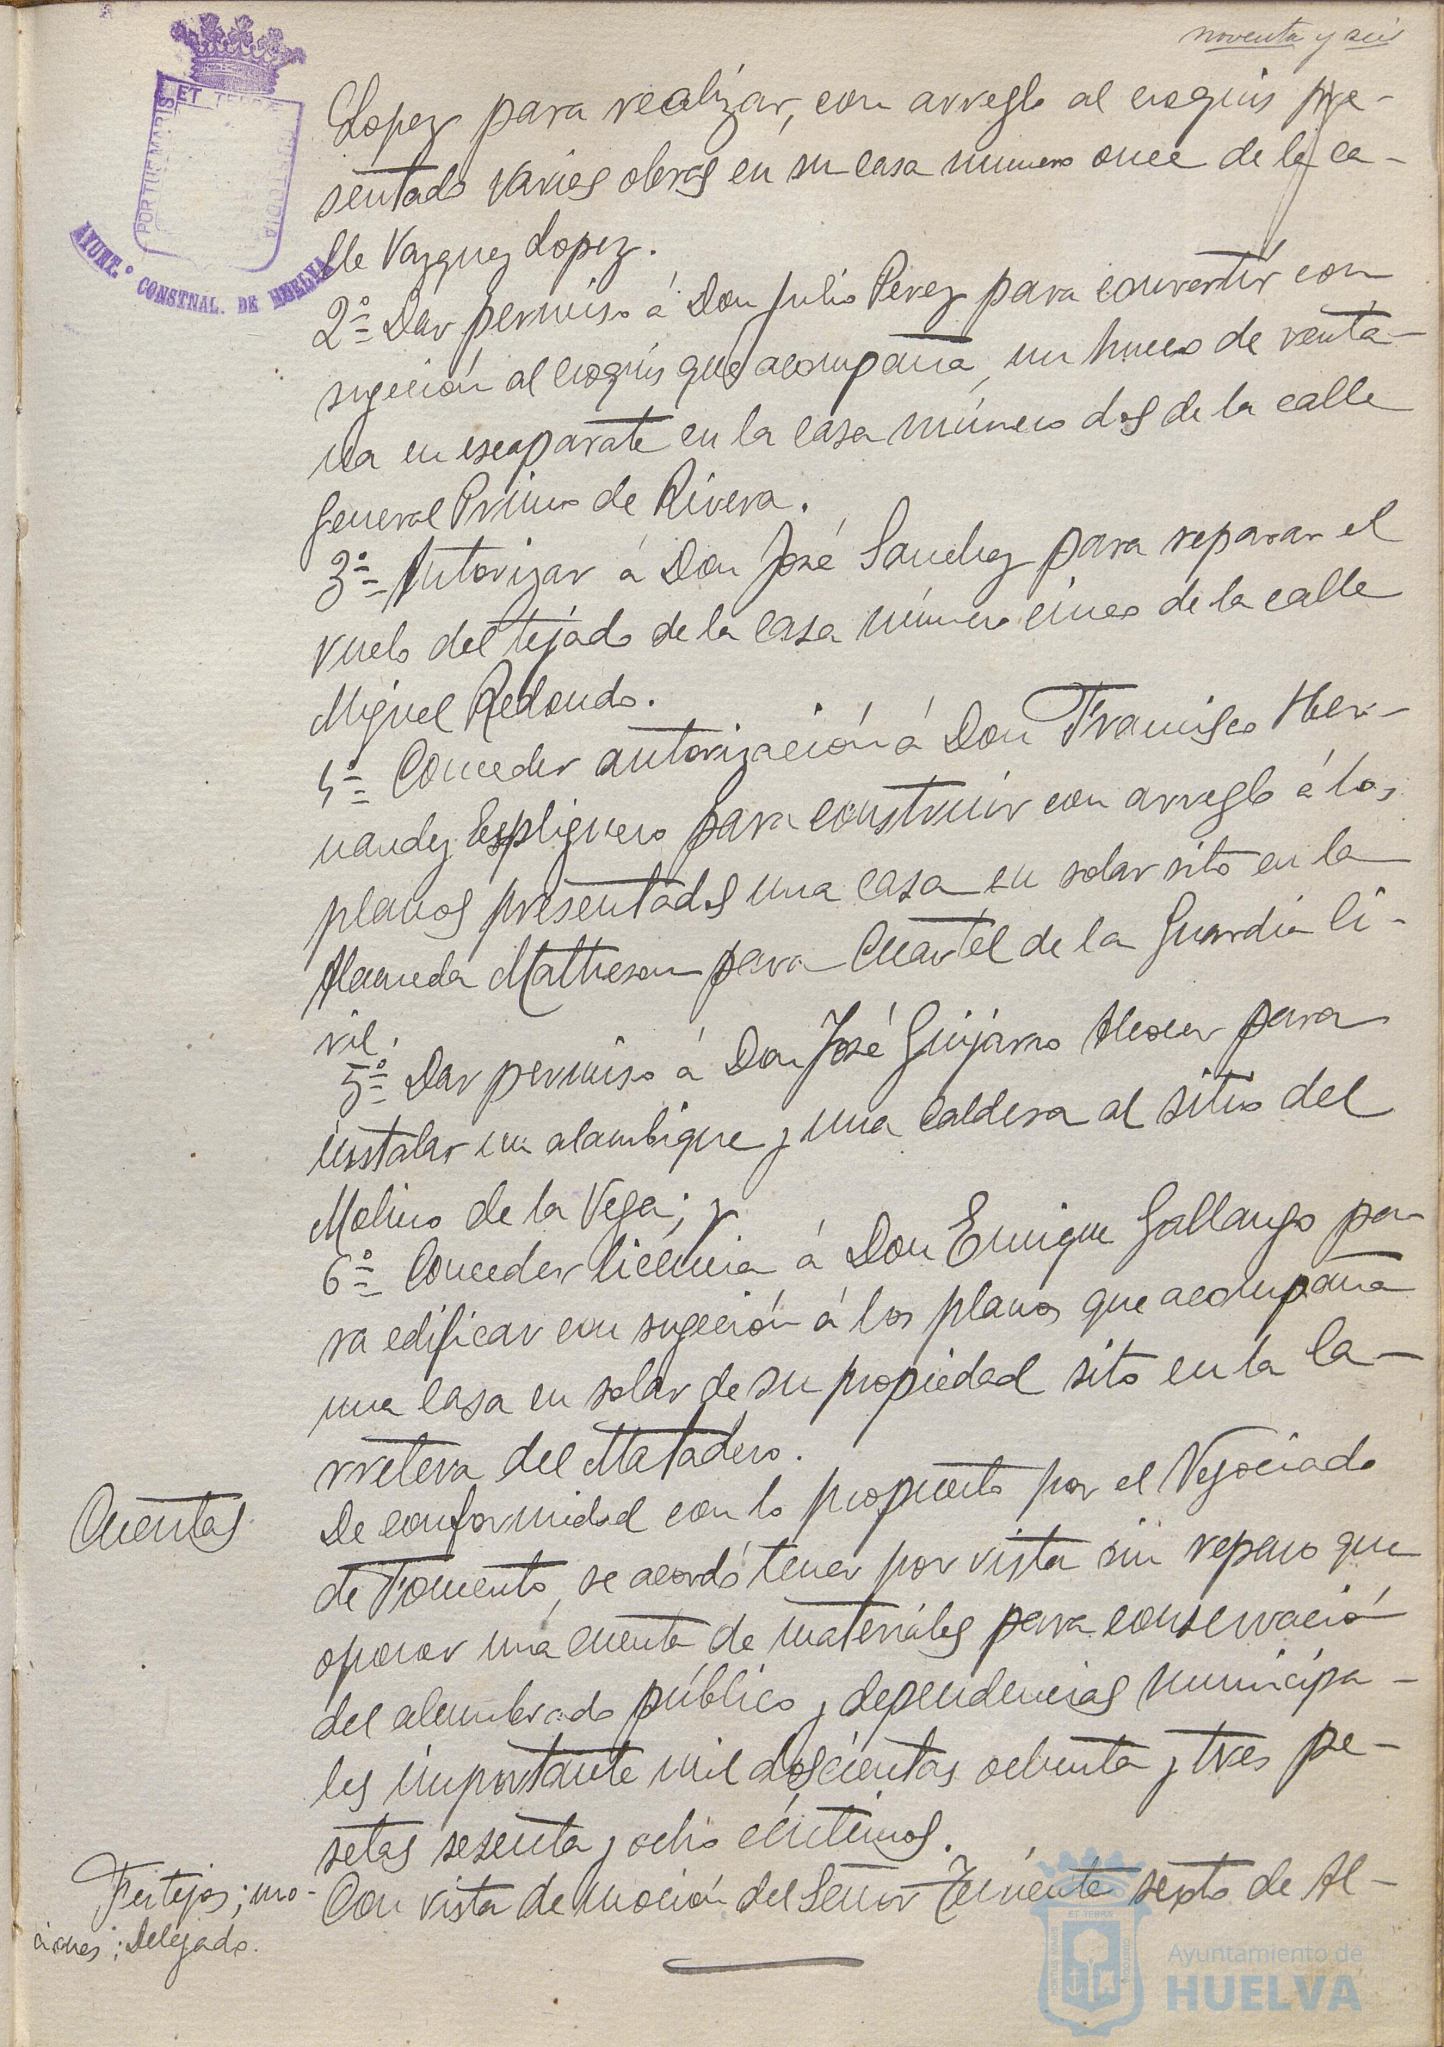 noventa y seis
PORTUS MARIS ET TERRE CUSTODIA
AYUNT.º CONSTNAL. DE HUELVA
Lopez para realizar, con arreglo al croquis pre-
sentado varias obras en su casa numero once de la ca-
lle Vazquez Lopez.
2º= Dar permiso á Don Julio Perez para convertir con
sugeción al croquis que acompaña, un hueco de venta-
na en escaparate en la casa número dos de la calle
General Primo de Rivera.
3º= Autorizar á Don José Sanchez para reparar el
vuelo del tejado de la casa número cinco de la calle
Miguel Redondo.
4º= Conceder autorización á Don Francisco Her-
nandez Espliguero para construir con arreglo á los
planos presentados una casa en solar sito en la
Alameda Matheson para Cuartel de la Guardia Ci-
vil.
5º= Dar permiso á Don José Guijarro Alcocer para
instalar un alambique y una caldera al sitio del
Molino de la Vega; y
6º= Conceder licencia á Don Enrique Gallango pa-
ra edificar con sugeción á los planos que acompaña
una casa en solar de su propiedad sito en la Ca-
rretera del Matadero.
Cuentas
De conformidad con lo propuesto por el Negociado
de Fomento, se acordó tener por vista sin reparo que
oponer una cuenta de materiales para conservación
del alumbrado público y dependencias municipa-
les importante mil doscientas ochenta y tres pe-
setas sesenta y ocho céntimos.
Festejos; mo-
ciones; Delegado.
Con vista de moción del Señor Teniente septo de Al-
Ayuntamiento de
HUELVA